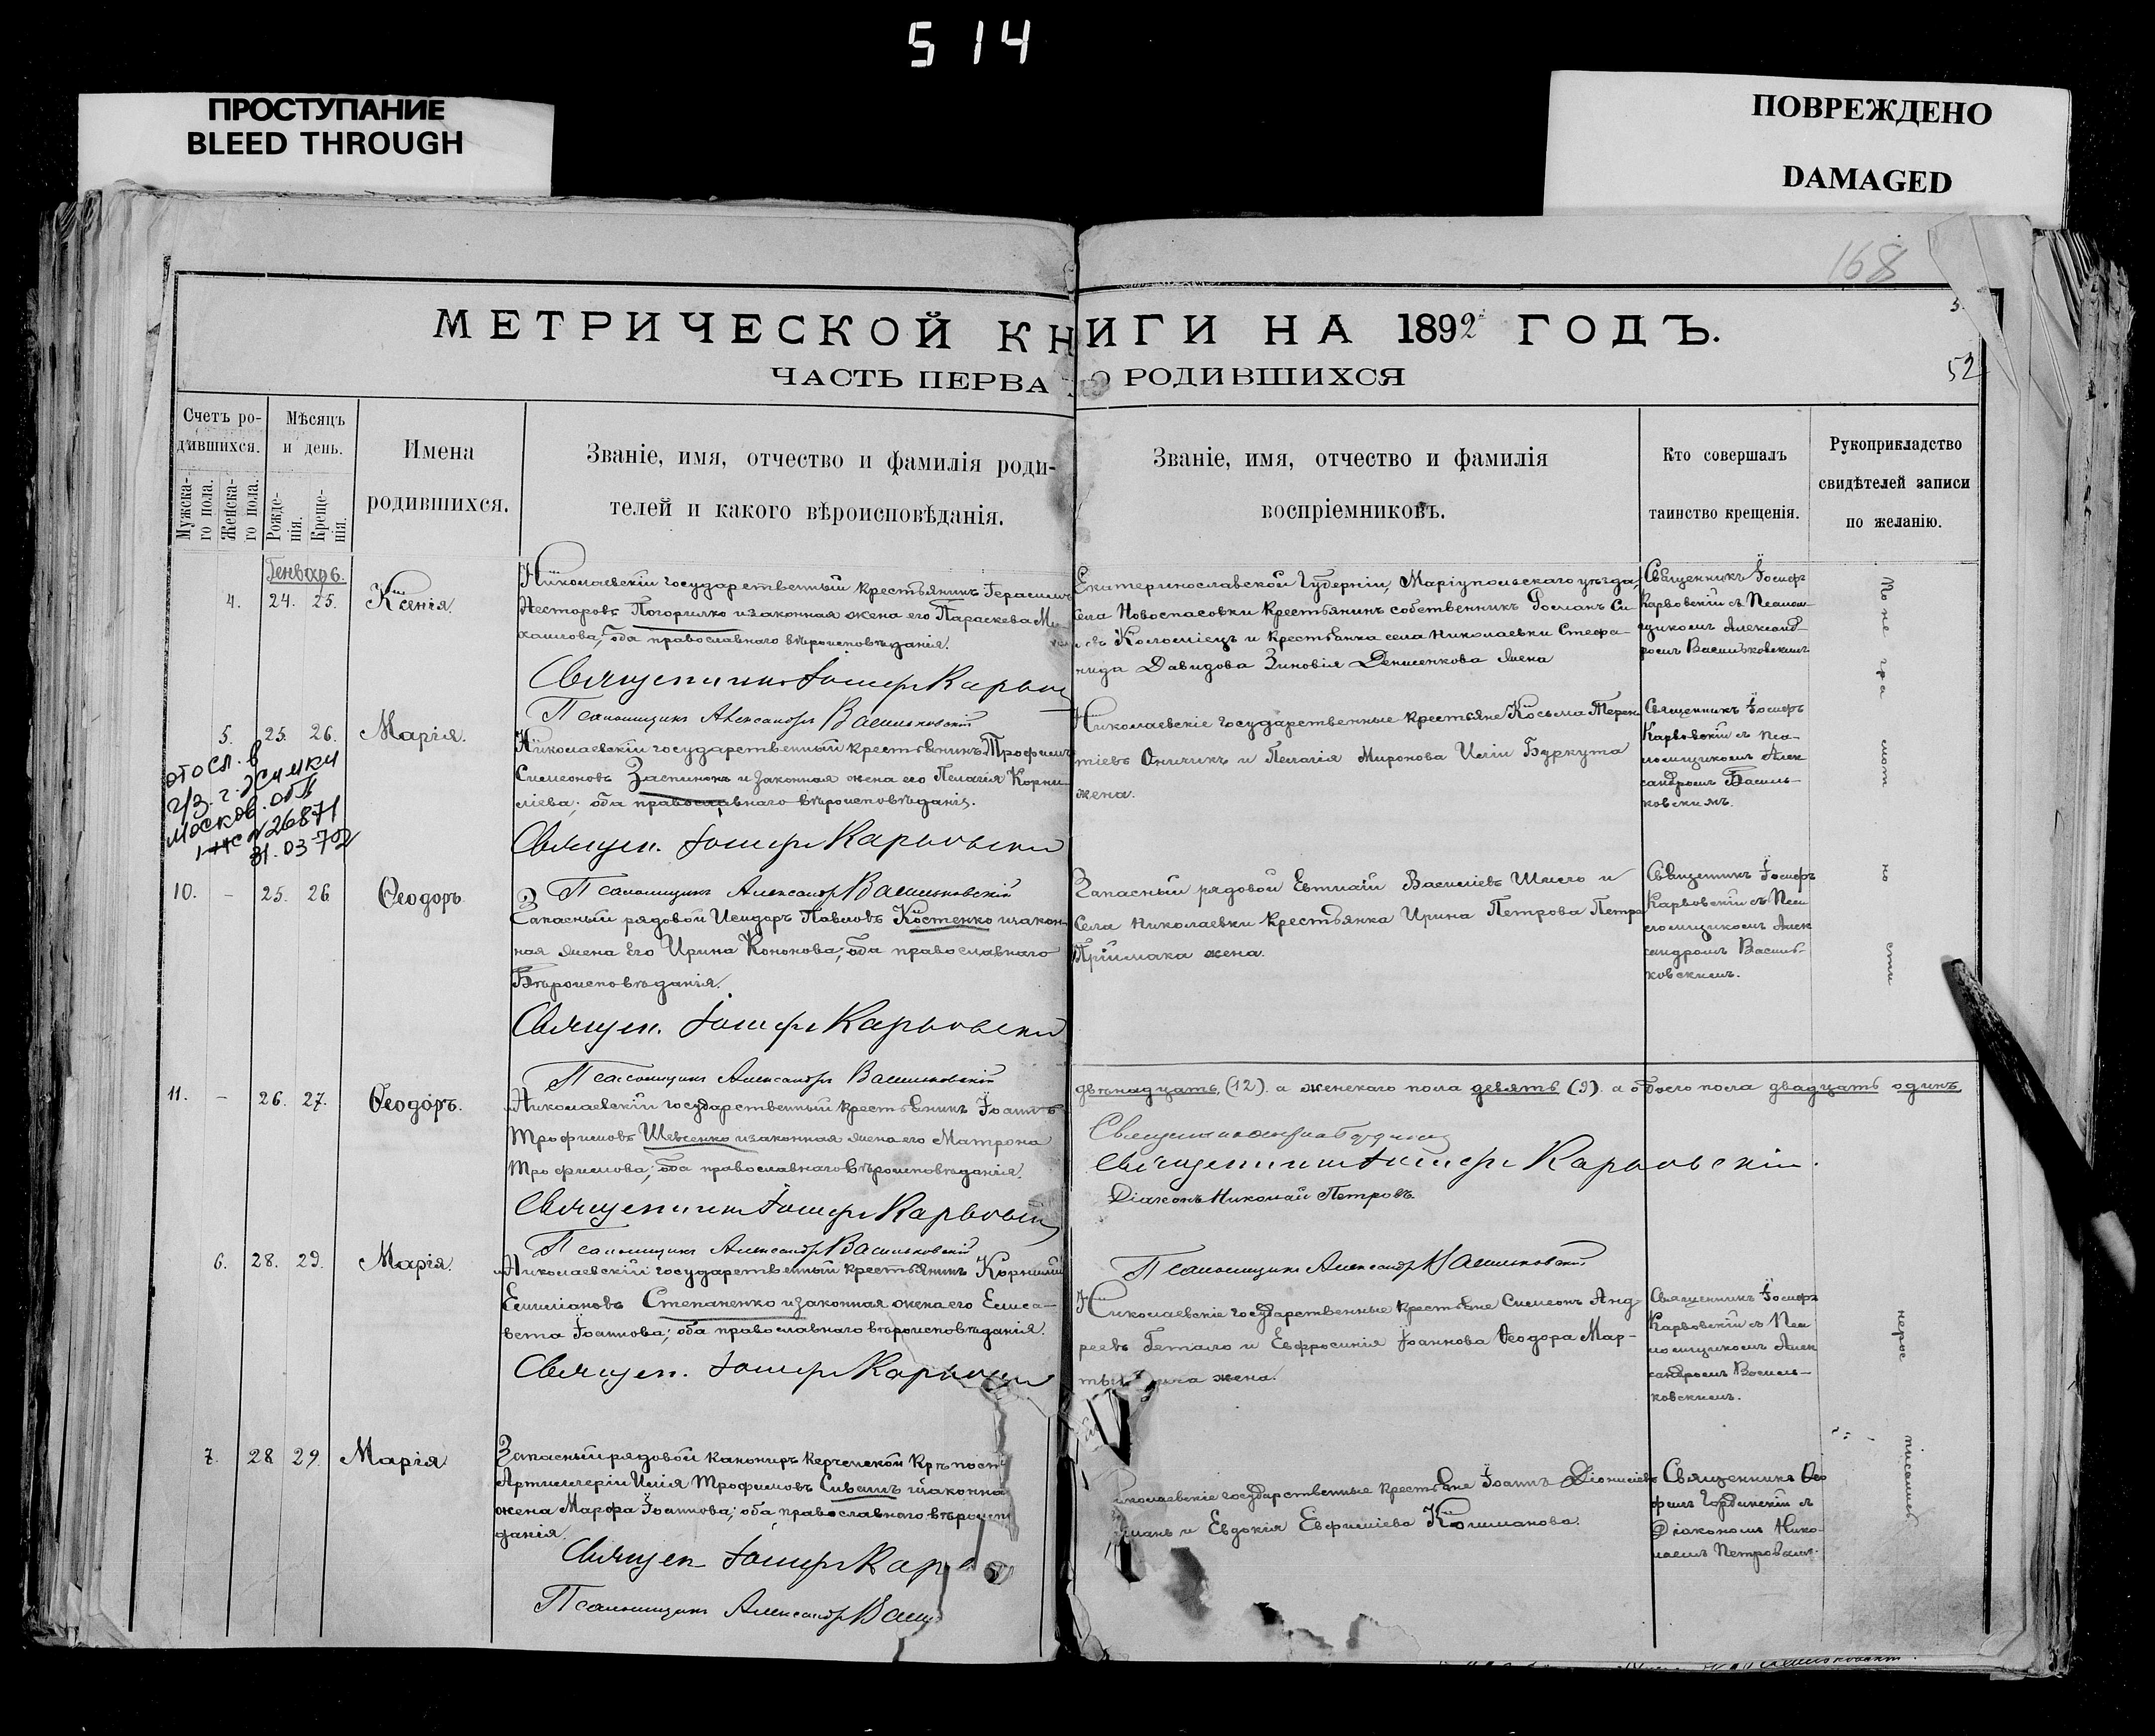 514
ПРОСТУПАНИЕ
BLEED THROUGH
ПОВРЕЖДЕНО
DAMAGED
168
52
МЕТРИЧЕСКОЙ КНИГИ НА 1892 ГОДЪ.
ЧАСТЬ ПЕРВА О РОДИВШИХСЯ
Счетъ ро-
дившихся.
Мужска-
го пола.
Женска-
го пола.
Мѣсяцъ
и день.
Рожде-
нія.
Креще-
нія.
Имена
родившихся.
Званіе, имя, отчество и фамилія роди-
телей и какого вѣроисповѣданія.
Званіе, имя, отчество и фамилія
воспріемниковъ.
Кто совершалъ
таинство крещенія.
Рукоприкладство
свидѣтелей записи
по желанію.
Генварь.
4. 24. 25. Ксенія.
Николаевскій государственный крестьянинъ Герасимъ
Несторовъ Погорилко и законная жена его Параскева Ми-
хаилова, оба православнаго вѣроисповѣданія.
Священникъ Іосифъ
Псаломщикъ Александръ Васильковскій
Екатеринославской Губерніи, Маріупольскаго уѣзда,
Села Новоспасовки крестьянинъ собственникъ Романъ
Коломіецъ и крестьянка села Николаевки Стефа-
нида Давидова Зиновія Денисенкова жена
Священникъ Іосифъ
Карвовскій съ Псалом-
щикомъ Александ-
ромъ Васильковскимъ
5. 25. 26. Марія.
Николаевскій государственный крестьянинъ Трофимъ
Симеоновъ и законная жена его Пелагія Корни-
ліева; оба православнаго вѣроисповѣданія.
Священ. Іосифъ Карвовскій
Псаломщикъ Александръ Васильковскій
Николаевскіе государственные крестьяне Косьма Терен-
тіевъ и Пелагія Миронова Иліи Буркута
жена.
Священникъ Іосифъ
Карвовскій съ Пса-
ломщикомъ Алек-
сандромъ Василь-
ковскимъ.
ото сл. в
г. Химки
Москов. обл
N 26871
31.03-70г
10. – 25. 26 Ѳеодоръ
Запасный рядовой Исидоръ Павловъ Костенко и закон-
ная жена его Ирина Кононова; оба православнаго
Вѣроисповѣданія.
Священ. Іосифъ Карвовскій
Псаломщикъ Александръ Васильковскій
Запасный рядовой Евтихій Василіевъ Шило и
Села Николаевки крестьянка Ирина Петрова Петра
Приймака жена.
Священникъ Іосифъ
Карвовскій съ Пса
ломщикомъ Алек
сандромъ Василь-
ковскимъ.
11. – 26. 27. Ѳеодоръ.
Николаевскій государственный крестьянинъ Іоаннъ
Трофимовъ Шевченко и законная жена его Матрона
Трофимова; оба православнаго вѣроисповѣданія.
Священникъ Іосифъ Карвовскій
Псаломщикъ Александръ Васильковскій
двѣнадцать (12). а женскаго пола девять (9). а обоего пола двадцать одинъ
Священникъ Іосифъ Карвовскій.
Діаконъ Николай Петровъ
Псаломщикъ Александръ Васильковскій
6. 28. 29. Марія.
Николаевскій государственный крестьянинъ Корнилій
Емиліановъ Степаненко и законная жена его Елиса-
вета Іоаннова; оба православнаго вѣроисповѣданія.
Священ. Іосифъ Карвовскій
Николаевскіе государственные крестьяне Симеонъ Анд-
реевъ Гетало и Евфросинія Іоаннова Ѳеодора Мар-
жена.
Священникъ Іосифъ
Карвовскій съ Пса
ломщикомъ Алек
сандромъ Василь-
ковскимъ.
7. 28 29. Марія
Запасный рядовой канониръ Керченской Крѣпост
Артиллеріи Илія Трофимовъ Сивашъ и законна
жена Марѳа Іоаннова; оба православнаго вѣроисп
данія.
Священ Іосифъ Кар
Псаломщикъ Александръ Васи
государственные крестьяне Іоаннъ Діонисіевъ
и Евдокія Евфиміева Колиманова.
Священникъ
Гординскій съ
Діакономъ Нико-
лаемъ Петровымъ.
По не гра мот но сти нерос писались